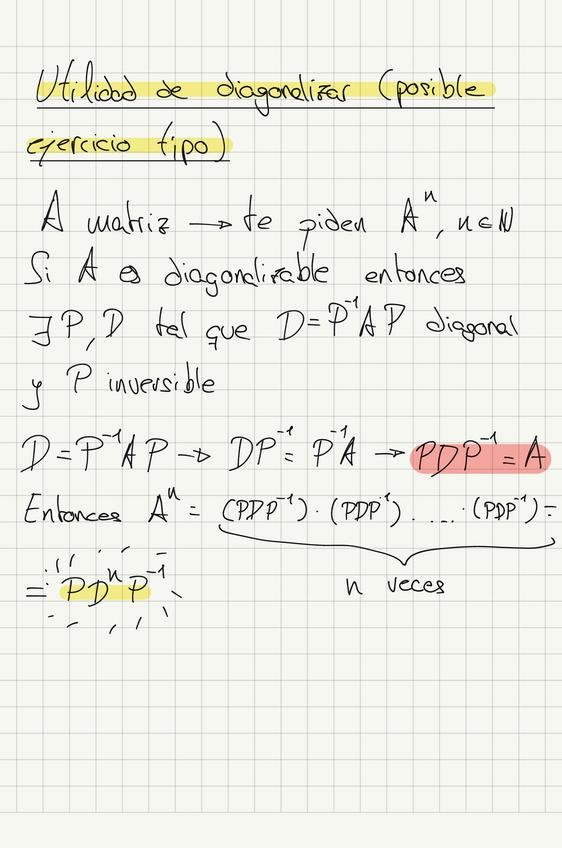 Utilidad de diagonalizar (posible
ejercicio tipo)
A matriz → te piden Aⁿ, n∈ℕ
Si A es diagonalizable entonces
∃ P, D tal que D = P⁻¹AP diagonal
y P inversible
D = P⁻¹AP → DP⁻¹ = P⁻¹A → PDP⁻¹ = A
Entonces Aⁿ = (PDP⁻¹) · (PDP⁻¹) · ... · (PDP⁻¹) =
n veces
= PDⁿP⁻¹